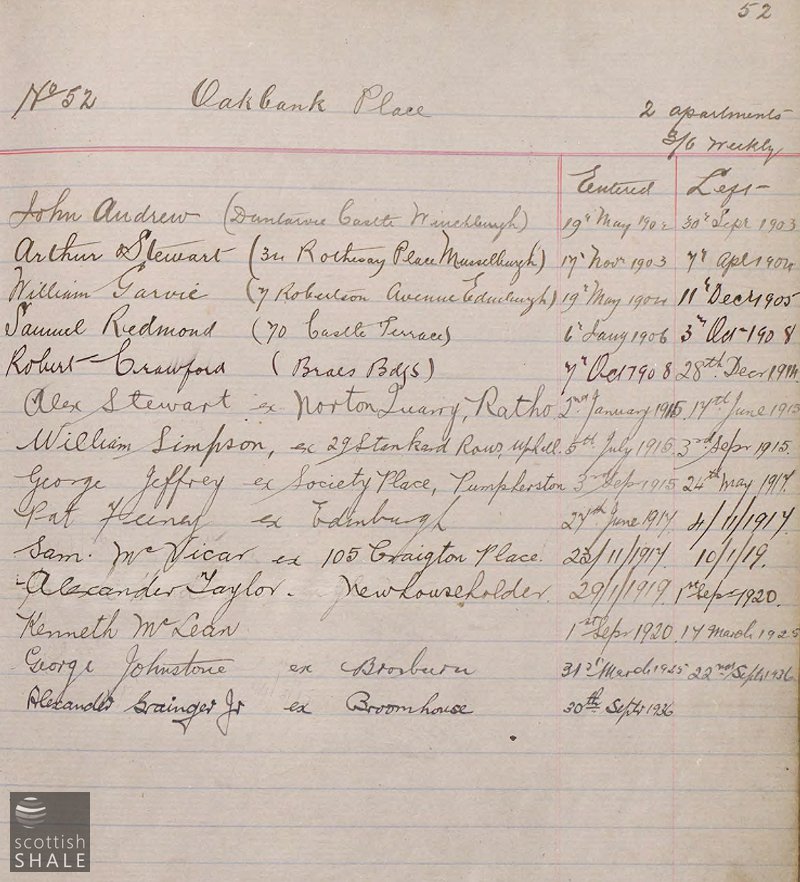 52
No 52 Oakbank Place
2 apartments
3/6 weekly
Entered Left
John Andrew (Duntarvie Castle Winchburgh) 19th May 1902 30th Sept 1903
Arthur Stewart (34 Rothesay Place Musselburgh) 17th Novr 1903 7th Apl 1904
William Garvie (7 Robertson Avenue Edinburgh) 19th May 1904 11th Decr 1905
Samuel Redmond (70 Castle Terrace) 6th Jany 1906 3rd Oct 1908
Robert Crawford (Braes Bdgs) 7th Oct 1908 28th Decr 1914
Alex Stewart ex Norton Quarry, Ratho 2nd January 1915 14th June 1915
William Simpson, ex 29 Stankard Rows, Uphall. 5th July 1915 3rd Sepr 1915.
George Jeffrey ex Society Place, Pumpherston 3rd Sep 1915 24th May 1917.
Pat Feeney ex Edinburgh 27th June 1917 4/11/1917.
Sam. McVicar ex 105 Craigton Place. 23/11/1917. 10/1/19.
Alexander Taylor. New householder. 29/1/1919. 1st Sepr 1920.
Kenneth McLean 1st Sepr 1920. 14 March 1925
George Johnstone ex Broxburn 31st March 1925 22nd Septr 1936
Alexander Grainger Jr ex Broomhouse 30th Septr 1936
scottish
SHALE